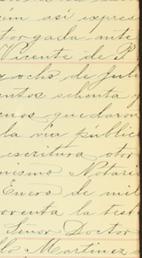 así expres
torgada ante
Vicente de P.
y ocho de Juli
entos ochenta y
enos quedaron
la via públic
escritura otor
mismo Notario
Enero de mil
noventa la test
Señor Doctor
Martinez